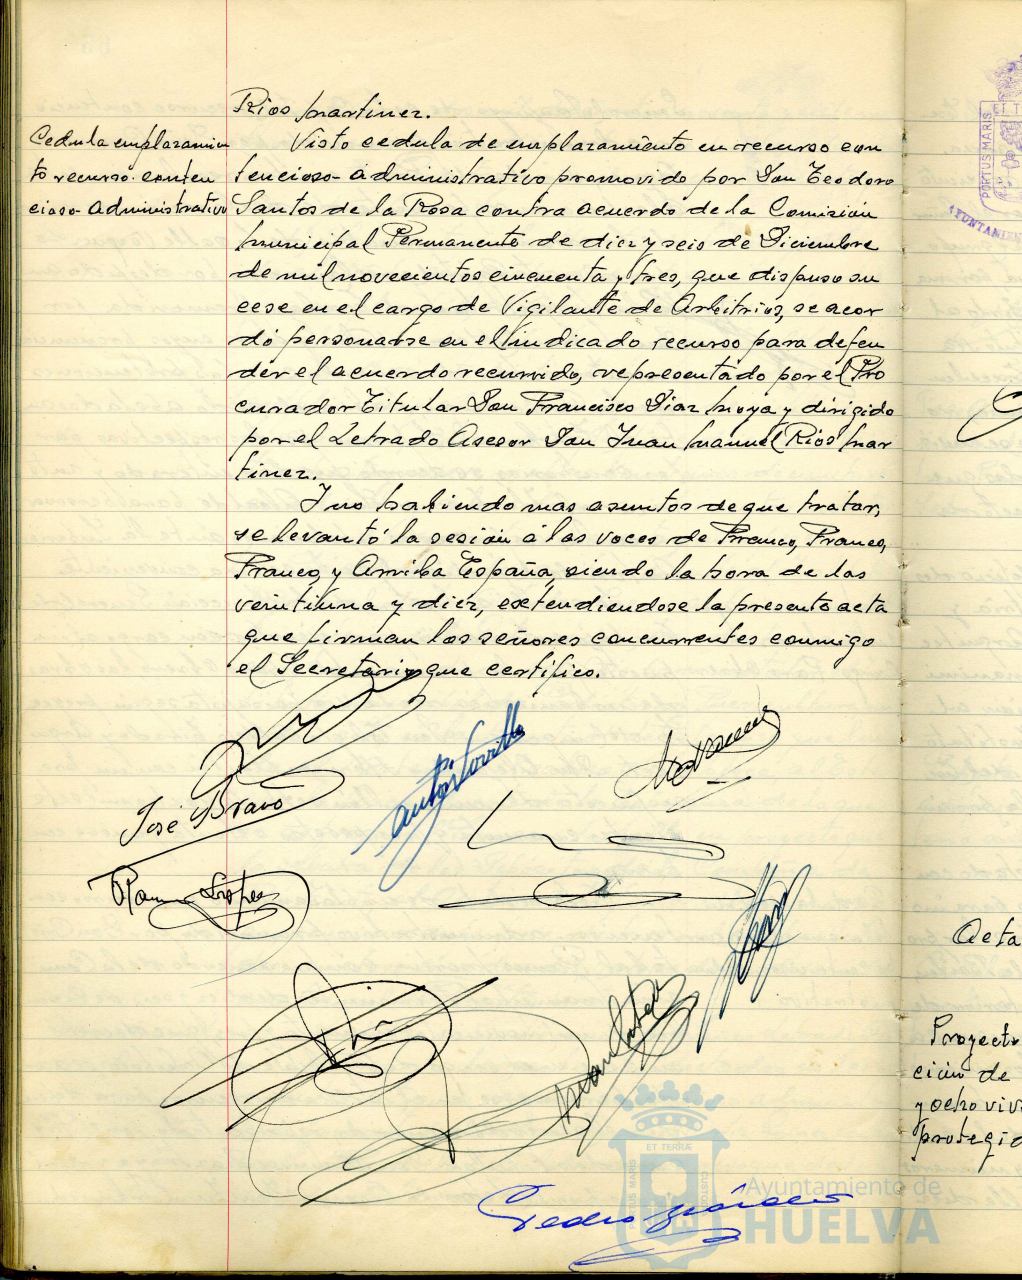 Rios Martinez.
Cedula emplazamien
to recurso conten
cioso-Administrativo
Visto cedula de emplazamiento en recurso con
tencioso-administrativo promovido por Don Teodoro
Santos de la Rosa contra acuerdo de la Comisión
Municipal Permanente de diez y seis de Diciembre
de mil novecientos cincuenta y tres, que dispuso su
cese en el cargo de Vigilante de Arbitrios, se acor
dó personarse en el indicado recurso para defen
der el acuerdo recurrido, representado por el Pro
curador Titular Don Francisco Diaz Moya y dirigido
por el Letrado Asesor Don Juan Manuel Rios Mar
tinez.
Y no habiendo mas asuntos de que tratar,
se levantó la sesión a las voces de Franco, Franco,
Franco, y Arriba España, siendo la hora de las
veintiuna y diez, extendiendose la presente acta
que firman los señores concurrentes conmigo
el Secretario, que certifico.
José Bravo
Ramon Lopez
Pedro
PORTUS MARIS
ET TERRÆ
CUSTODIA
Ayuntamiento de
HUELVA
PORTUS MARIS
ET T
AYUNTAMIEN
Acta
Proyecto
ción de
y ocho viv
protegid